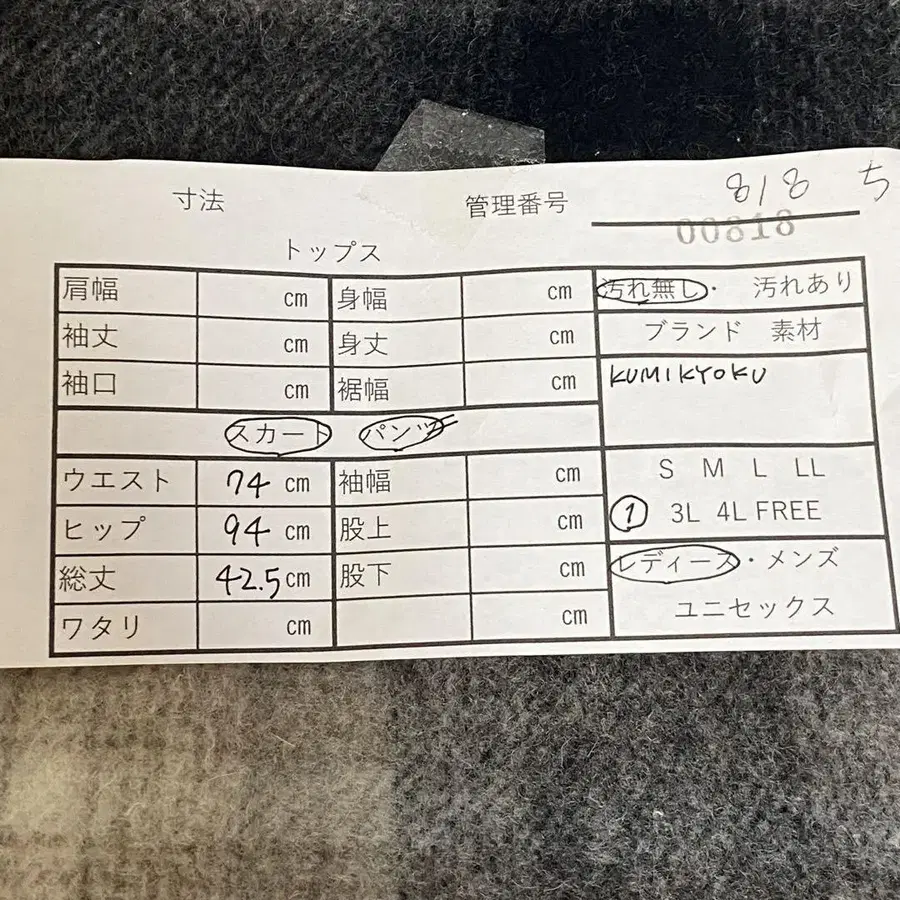 寸法 管理番号 818 ち
00818
トップス
肩幅 cm 身幅 cm 汚れ無し・ 汚れあり
袖丈 cm 身丈 cm ブランド 素材
袖口 cm 裾幅 cm KUMIKYOKU
スカート パンツ
ウエスト 74 cm 袖幅 cm S M L LL
ヒップ 94 cm 股上 cm 1 3L 4L FREE
総丈 42.5 cm 股下 cm レディース・メンズ
ワタリ cm cm ユニセックス